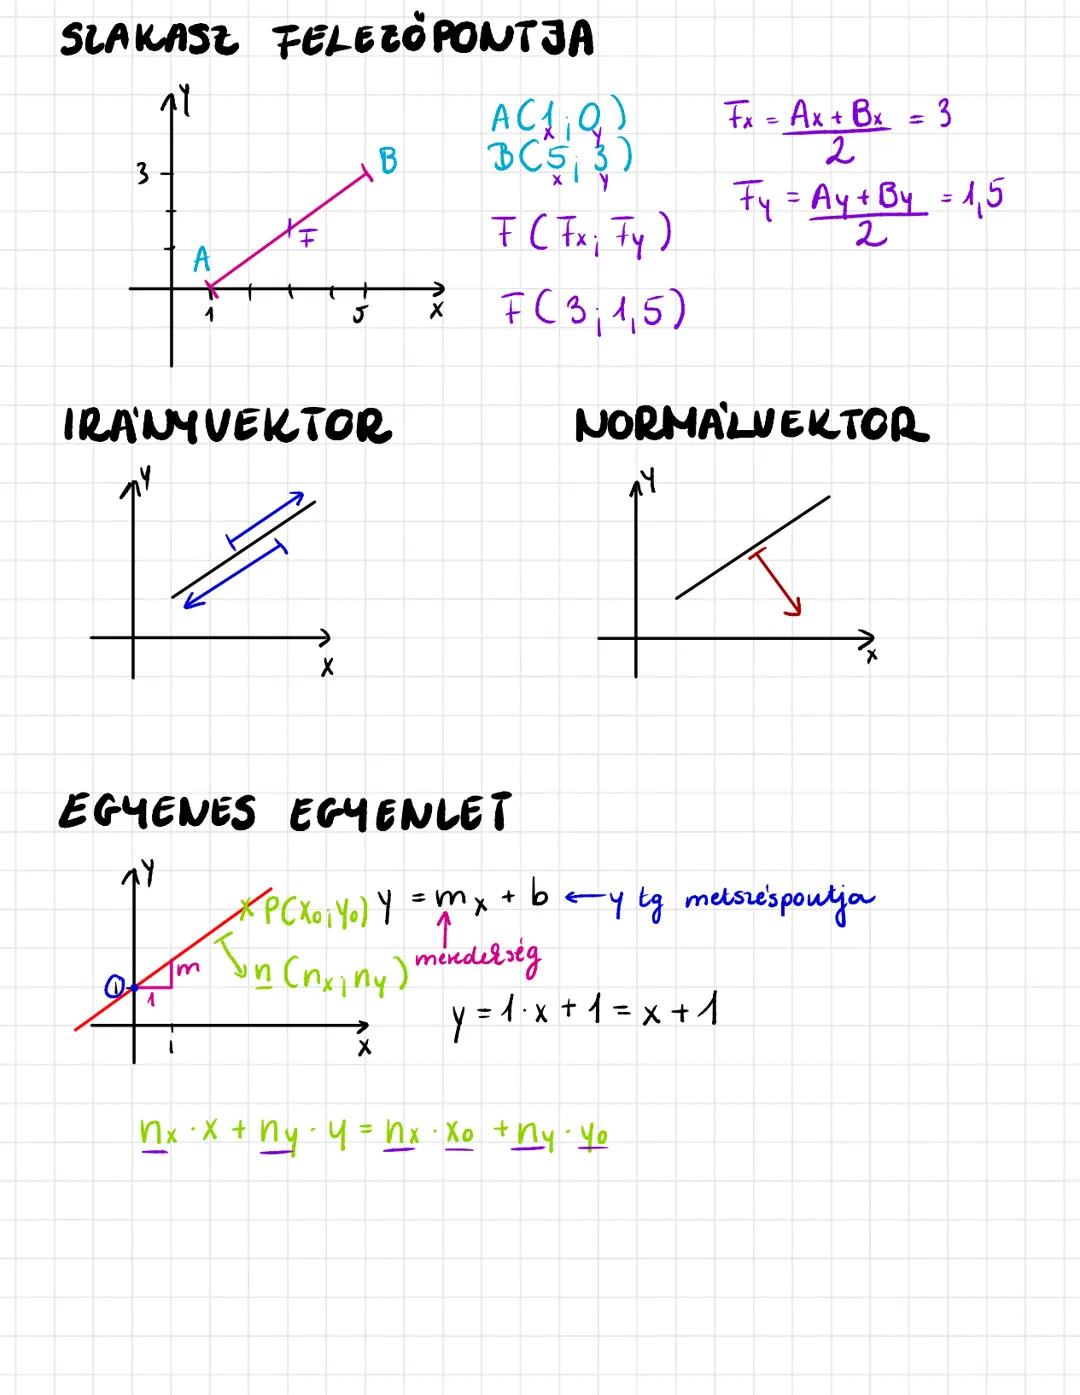 SZAKASZ FELEZŐPONTJA
Y
3
A
B
F
1
5
X
A(1;0)
x y
B(5;3)
x y
F(Fx;Fy)
F(3;1,5)
Fx = Ax + Bx / 2 = 3
Fy = Ay + By / 2 = 1,5
IRÁNYVEKTOR
Y
X
NORMÁLVEKTOR
Y
x
EGYENES EGYENLET
Y
P(x0;y0) y = mx + b ← y tg metszéspontja
meredekség
n (nx;ny)
m
1
1
1
X
y = 1·x + 1 = x + 1
nx · x + ny · y = nx · x0 + ny · y0